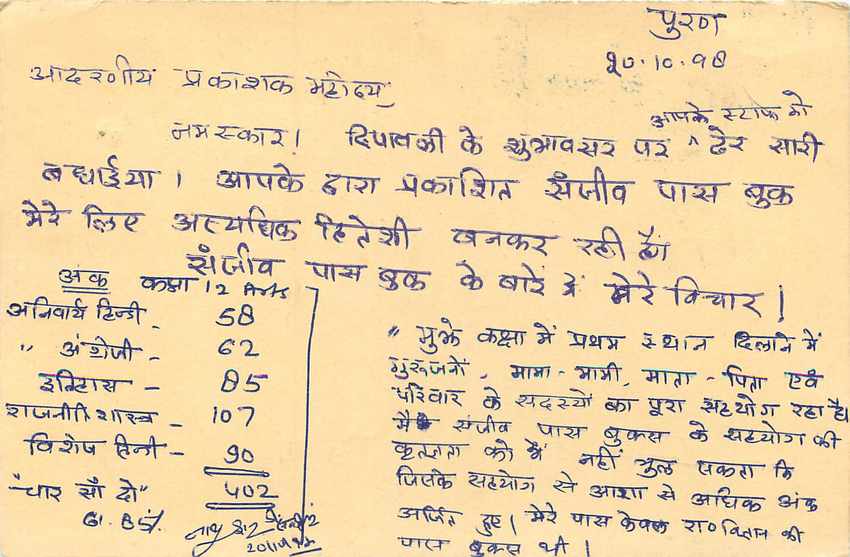 पुरण
20.10.98
आदरणीय प्रकाशक महोदय,
आपके स्टाफ को
नमस्कार! दिपावली के शुभावसर पर ^ ढेर सारी
बधाईया। आपके द्वारा प्रकाशित संजीव पास बुक
मेरे लिए अत्यधिक हितेशी बनकर रही है।
संजीव पास बुक के बारे में मेरे विचार!
अंक कक्षा 12 Arts
अनिवार्य हिन्दी - 58
" अंग्रेजी - 62
इतिहास - 85
राजनीति शास्त्र - 107
विशेष हिन्दी - 90
"चार सौ दो" 402
" मुझे कक्षा में प्रथम स्थान दिलाने में
गुरुजनों, मामा-मामी, माता-पिता एवं
परिवार के सदस्यों का पूरा सहयोग रहा है।
मैं संजीव पास बुक्स के सहयोग की
कृतज्ञता को मैं नहीं भुल सकता कि
जिसके सहयोग से आशा से अधिक अंक
अर्जित हुए। मेरे पास केवल रा० विज्ञान की
पास बुक्स थी।